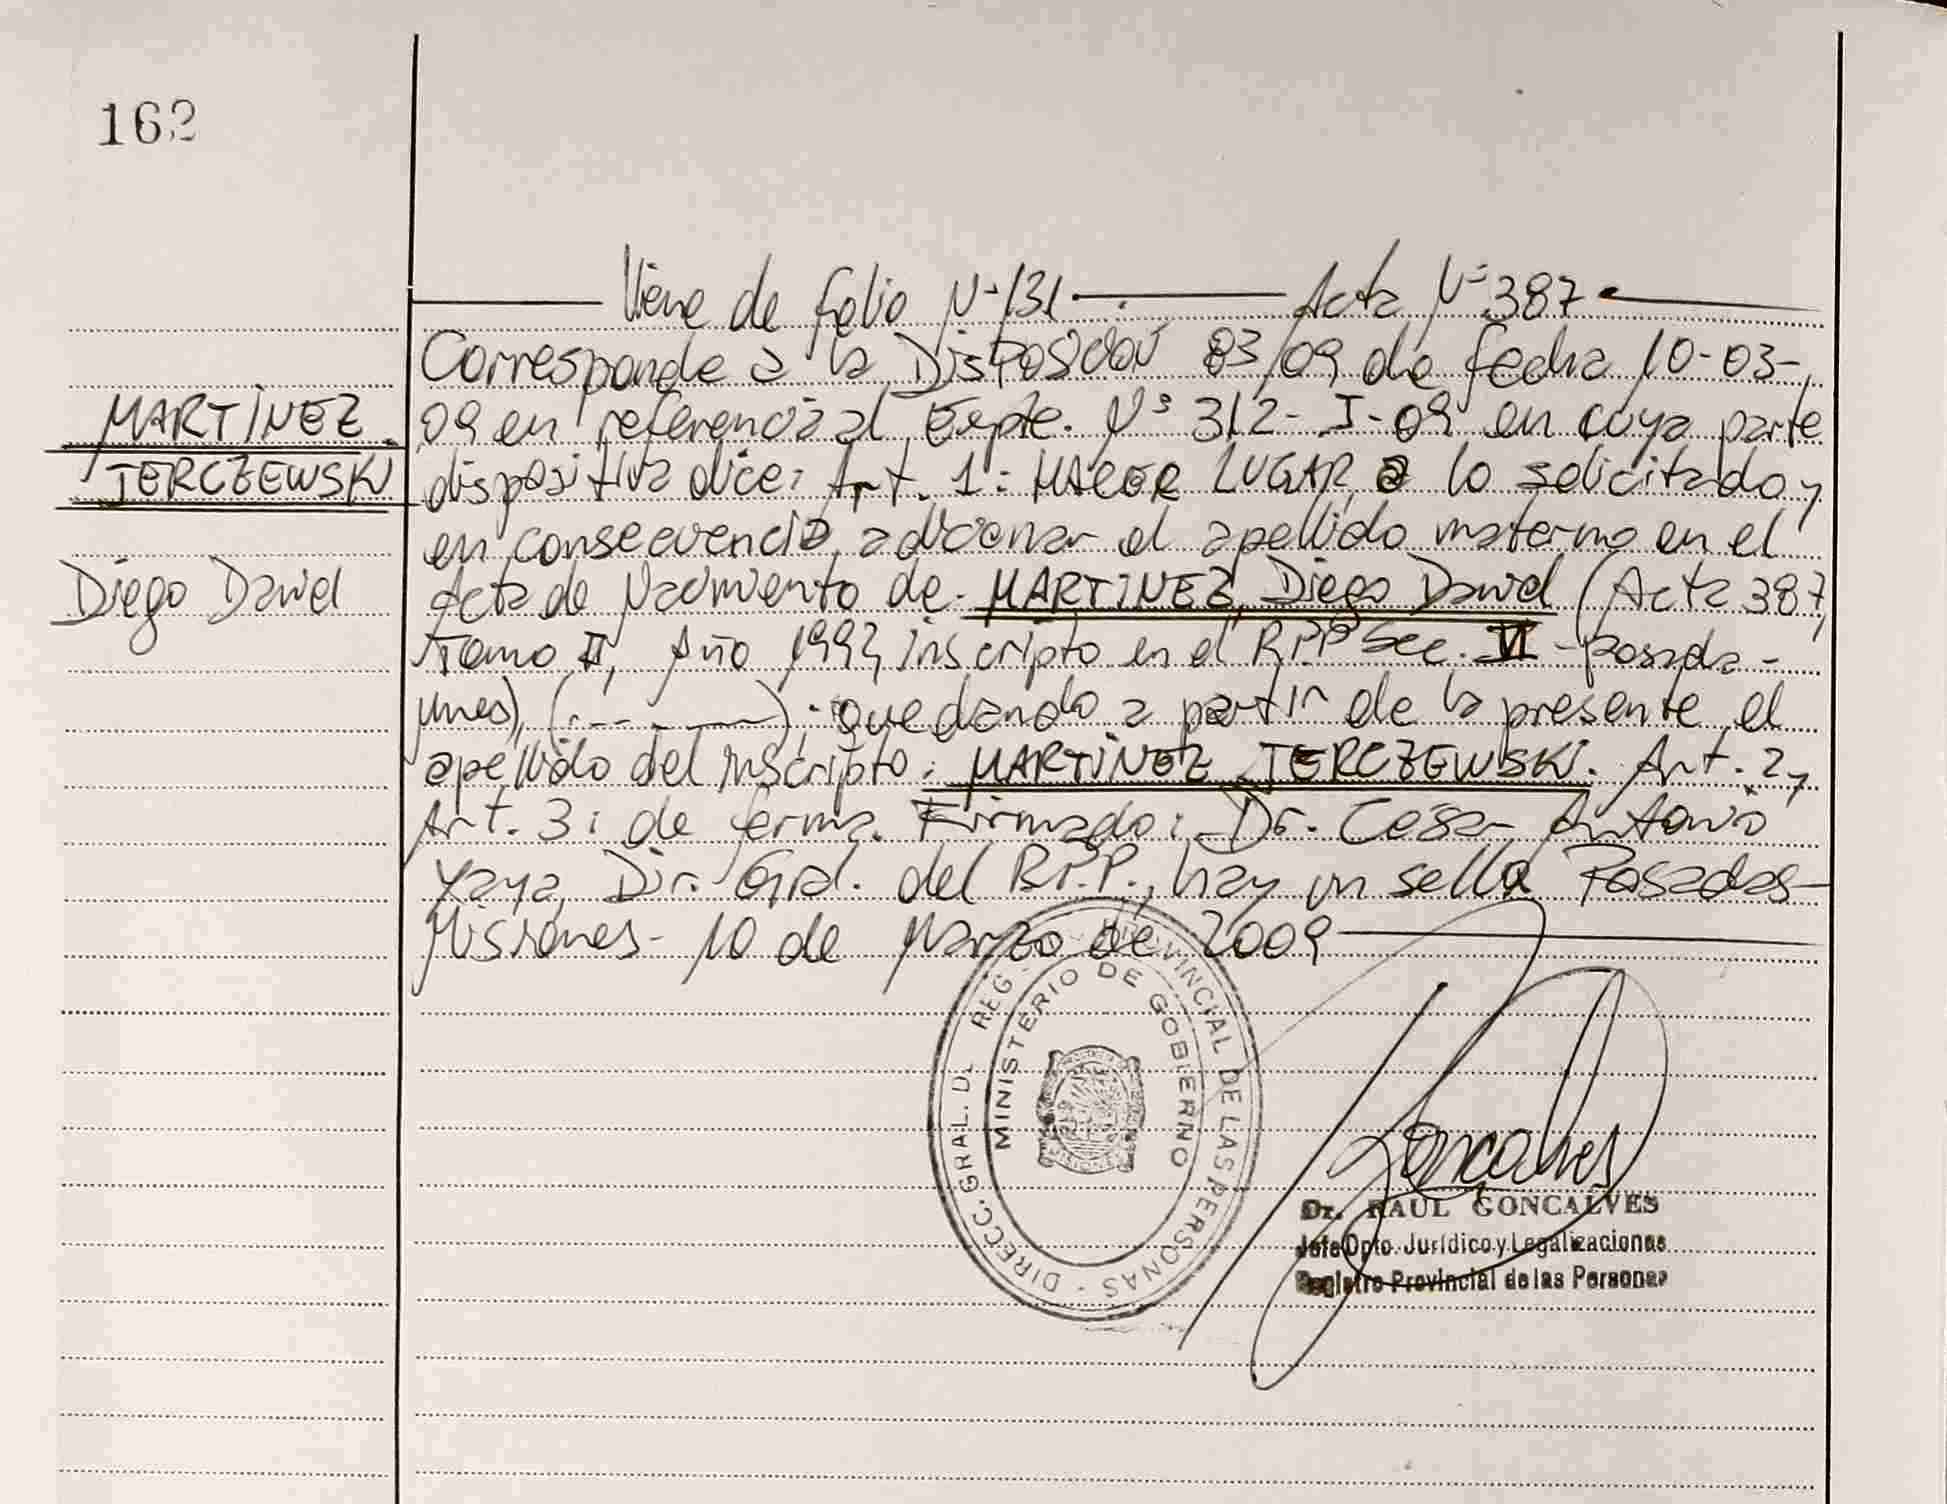 162
Viene de folio Nº 131 Acta Nº 387
Corresponde a la Disposición 83/09 de fecha 10-03-
MARTÍNEZ
09 en referencia al Expte. Nº 312-I-09 en cuya parte
JERCZEWSKI
dispositiva dice: Art. 1: HACER LUGAR a lo solicitado y
en consecuencia, adicionar el apellido materno en el
Diego David
Acta de Nacimiento de MARTÍNEZ, Diego David (Acta 387,
Tomo II, Año 1992, inscripto en el R.P.P Sec. VI - Posada-
Mnes), (.-- ---); quedando a partir de la presente el
apellido del inscripto: MARTÍNEZ JERCZEWSKI. Art. 2 y
Art. 3: de forma. Firmado: Dr. Cesar Antonio
Yaya, Dir. Gral. del R.P.P., hay un sello Posadas-
Misiones- 10 de Marzo de 2009
DIRECC. GRAL. DE REG. PROVINCIAL DE LAS PERSONAS -
MINISTERIO DE GOBIERNO
MISIONES
Goncalves
Dr. RAUL GONCALVES
Jefe Dpto. Jurídico y Legalizaciones
Registro Provincial de las Personas